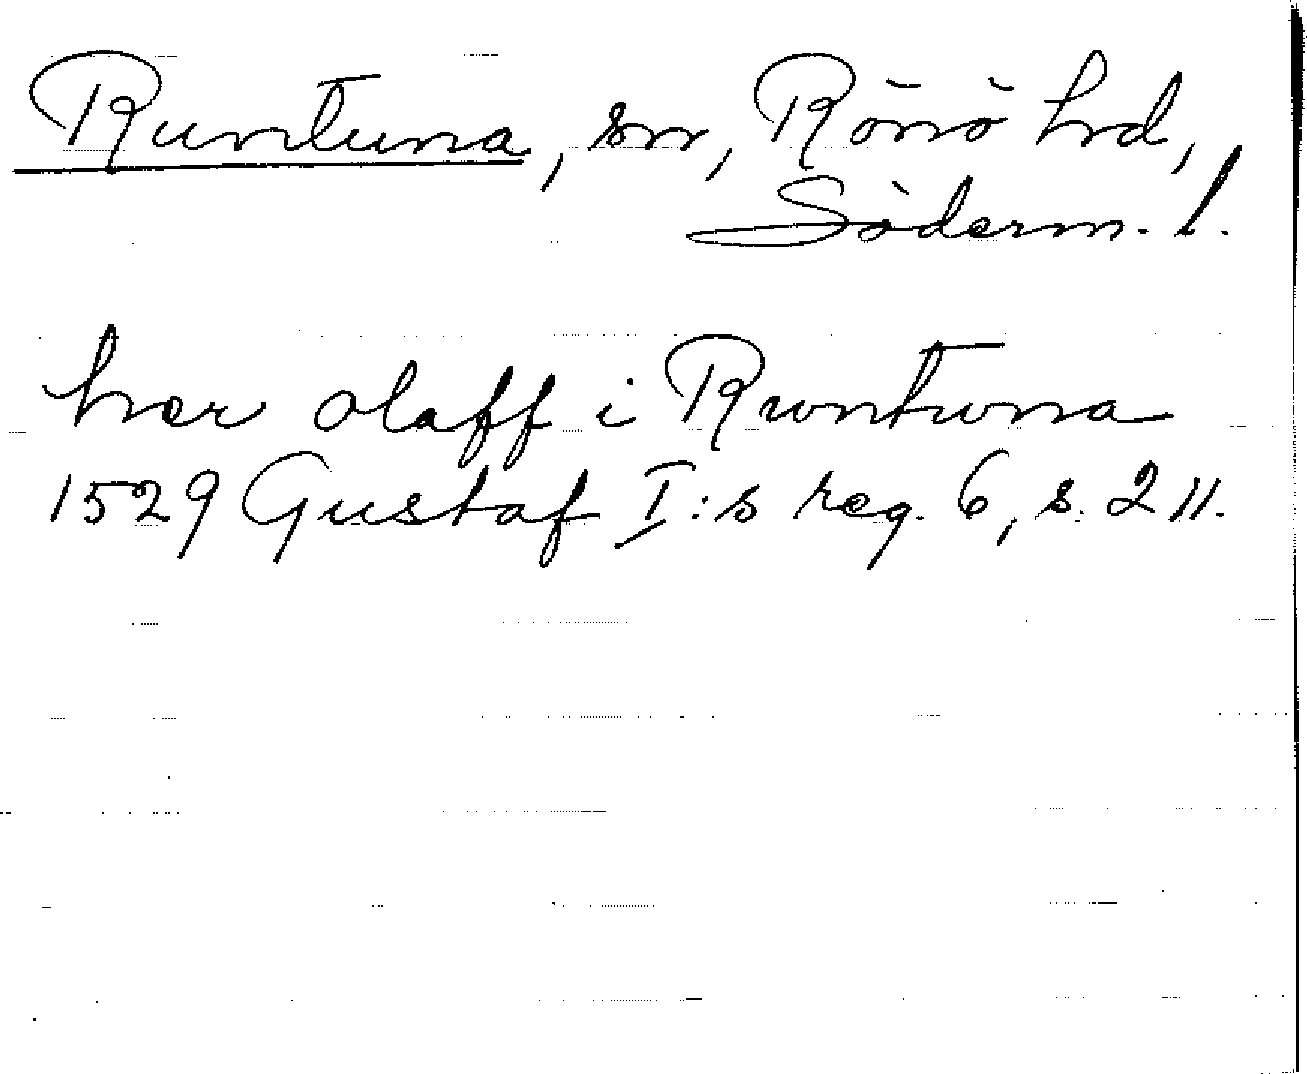 Runtuna, sn, Rönö hd,
Söderm. l.
her olaff i Rwntwna
1529 Gustaf I:s reg. 6, s. 211.